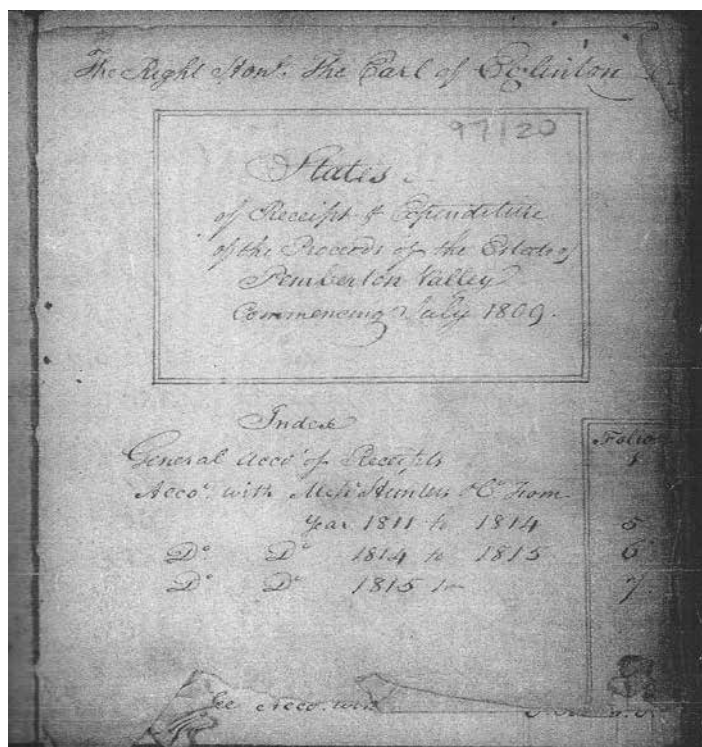 The Right Honl. The Earl of Eglinton
97120
States
of Receipt & Expenditure
of the Proceeds of the Estate of
Pemberton Valley
Commencing July 1809.
Index
Folio
General Acco.t of Receipts 1
Acco.t with Mess.rs Hunters & Co. from
Year 1811 to 1814 5
Do. Do. 1814 to 1815 6
Do. Do. 1815 to 7
Acco. with